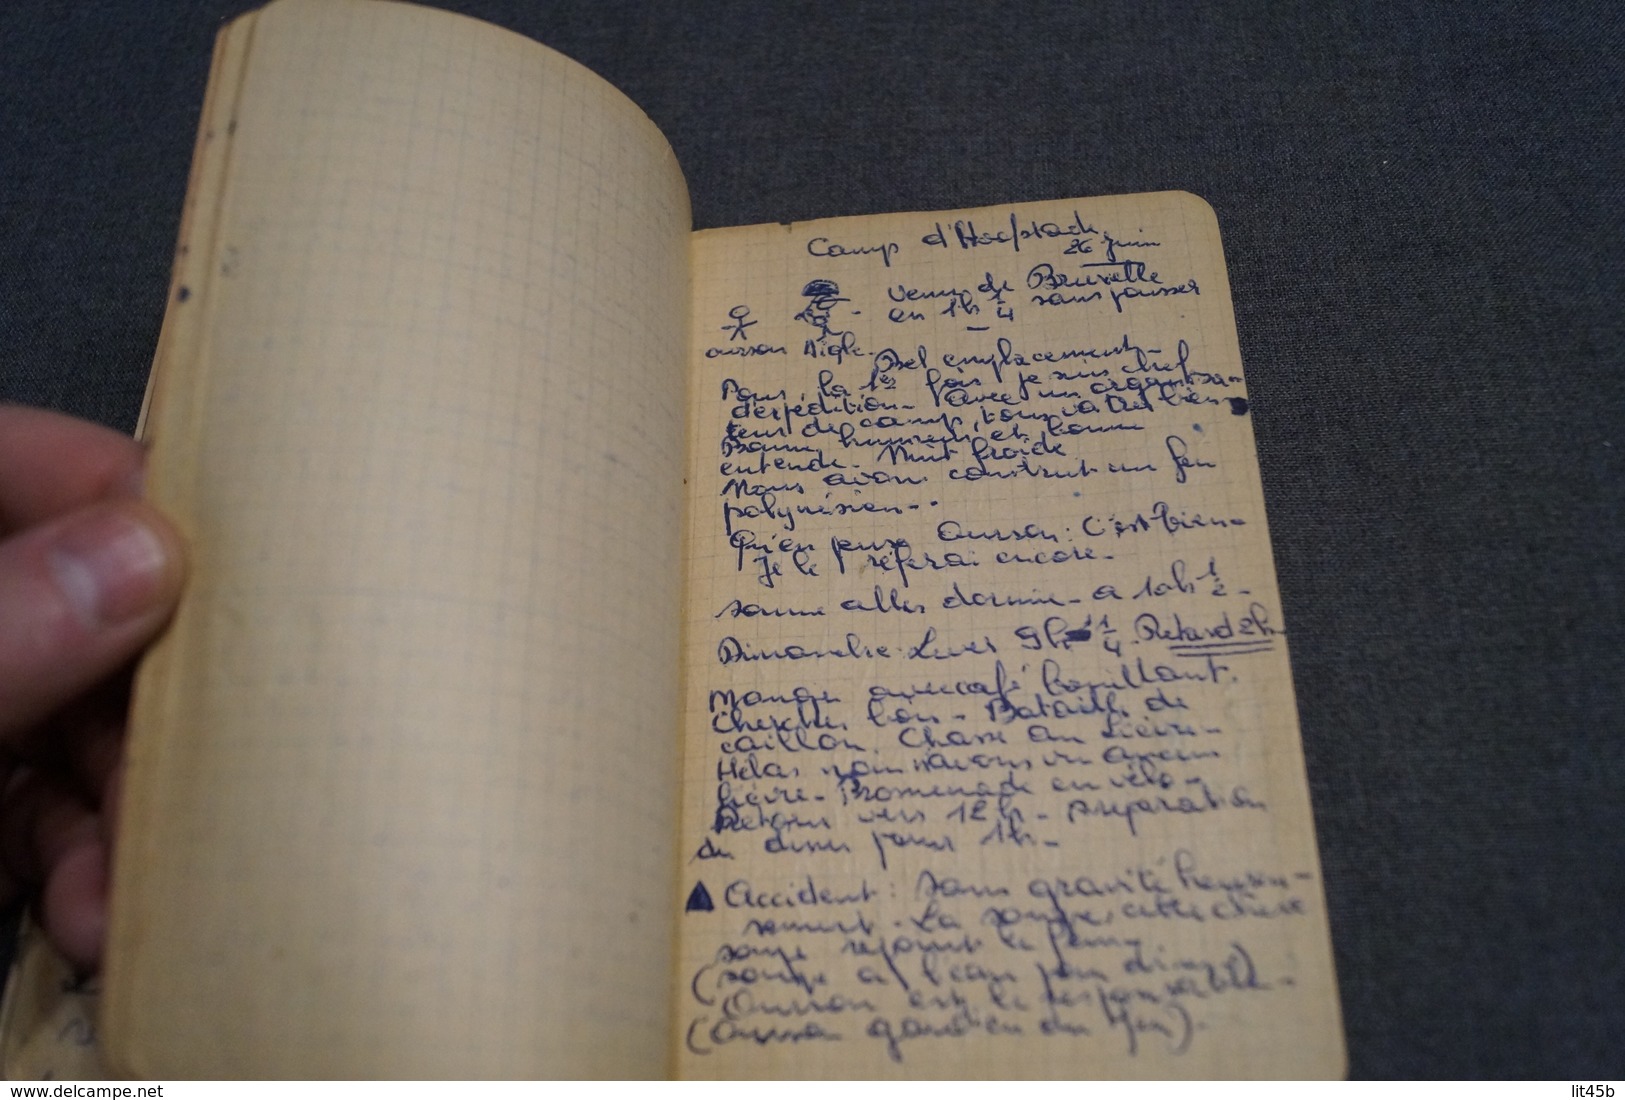 Camp d'Hoefstade
26 Juin
venu de Bruxelle
en 1h 1/4 sans pousser
ourson Aigle.
Bel emplacement -
Pour la 1er fois je suis chef
d'espédition - avec un organisa-
teur de camp, tous va très bien -
Bonne humeur et bonne
entende. Nuit froide
Nous avons construit un feu
polynésien - .
Qu'en pense Ourson : C'est bien -
Je le referai encore -
somme allés dormir - a 10h 1/2 -
Dimanche. Lever 9h 1/4. Retard 2h
Manger avec café bouillant.
Chercher bois - Bataille de
caillou. Chasse au Lièvre -
Hélas nous n'avons vu aucun
lièvre - Promenade en vélo -
Retour vers 12h - préparation
du diner pour 1h -
Accident : sans gravité heureu-
sement. La soupe, cette chère
soupe rejoint le feu -
(soupe a l'eau pour diner)
Ourson est le responsable -
(Ourson gardien du feu).
www.delcampe.net
lit45b